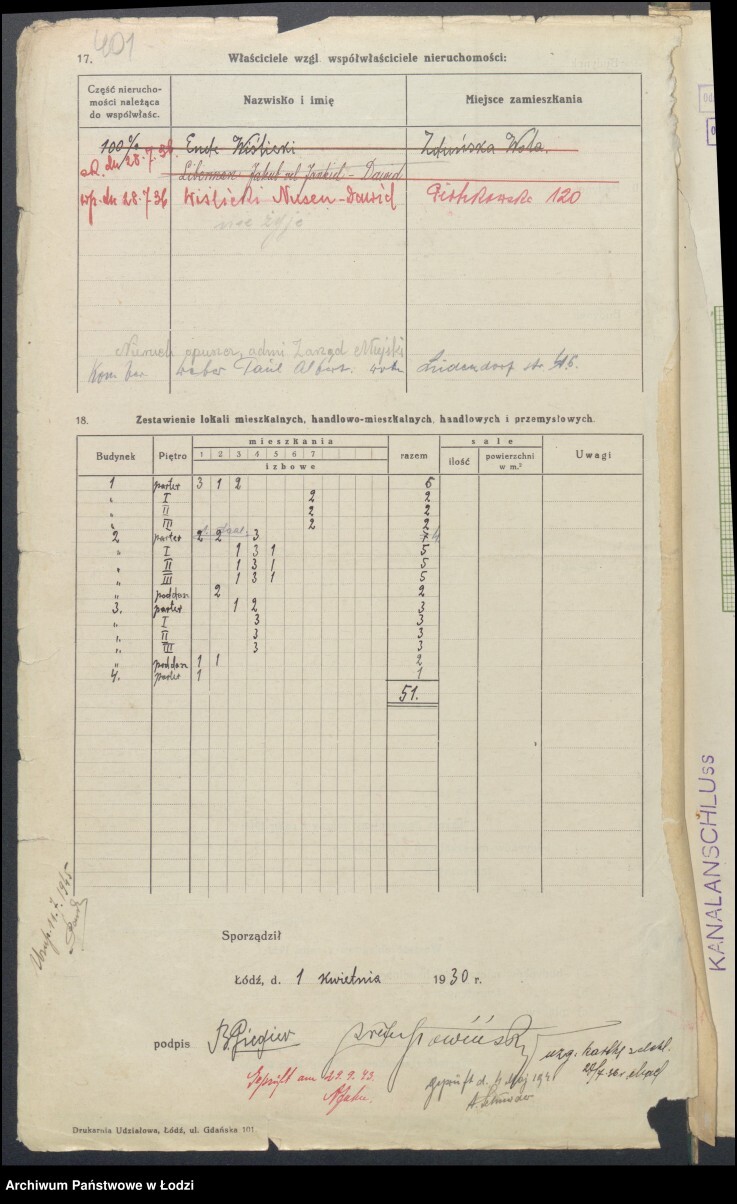 401
17. Właściciele wzgl. współwłaściciele nieruchomości:
Część nierucho-
mości należąca
do współwłaśc.
Nazwisko i imię
Miejsce zamieszkania
100% Wiślicki Zduńska Wola.
dn 28.7.36 Jakub Jankiel - Dawid
wp. dn 28.7.36 Wiślicki Nusen-Dawid Piotrkowska 120
nie żyje
Nieruch. opuszcz. admi Zarząd Miejski
Kom. Ver. Weber Paul Albert.
18. Zestawienie lokali mieszkalnych, handlowo-mieszkalnych, handlowych i przemysłowych.
Budynek Piętro mieszkania razem sale Uwagi
1 2 3 4 5 6 7 ilość powierzchni
w m.²
izbowe
1 parter 3 1 2 6
„ I 2 2
„ II 2 2
„ III 2 2
2 parter 2 2 3 7 4
„ I 1 3 1 5
„ II 1 3 1 5
„ III 1 3 1 5
„ poddasz 2 2
3. parter 1 2 3
„ I 3 3
„ II 3 3
„ III 3 3
„ poddasz 1 1 2
4. parter 1 1
51.
Sporządził
Łódź, d. 1 kwietnia 1930 r.
podpis
Geprüft am 29.9.43.
geprüft d. 4 Maj 1941
Drukarnia Udziałowa, Łódź, ul. Gdańska 101.
KANALANSCHLUSS
Archiwum Państwowe w Łodzi